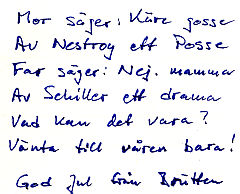 Mor säger: Käre gosse
Av Nestroy ett Posse
Far säger: Nej, mamma
Av Schiller ett drama
Vad kan det vara?
Vänta till våren bara!
God Jul från Britten